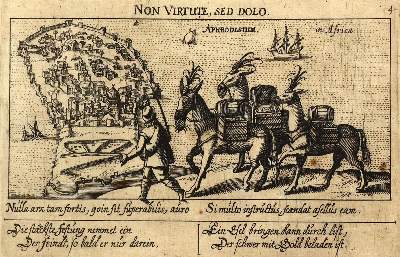 NON VIRTUTE, SED DOLO.
4
APHRODISIUM. in Africa
Nulla arx tam fortis, quin sit superabilis, auro
Si multo instructus, scandat asellus eam.
Die stärckste festung nimmet ein
Der feindt, so bald er nur darein.
Ein Esel bringen kann durch list,
Der schwer mit Gold beladen ist.